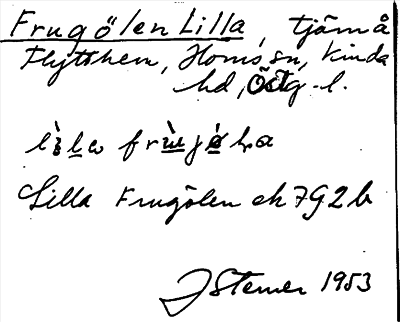 Frugölen Lilla, tjärn å
Flytthem, Homs sn, Kinda
hd, Östg. l.
Lilla Frugölen ek 7G2b
J Stemer 1953